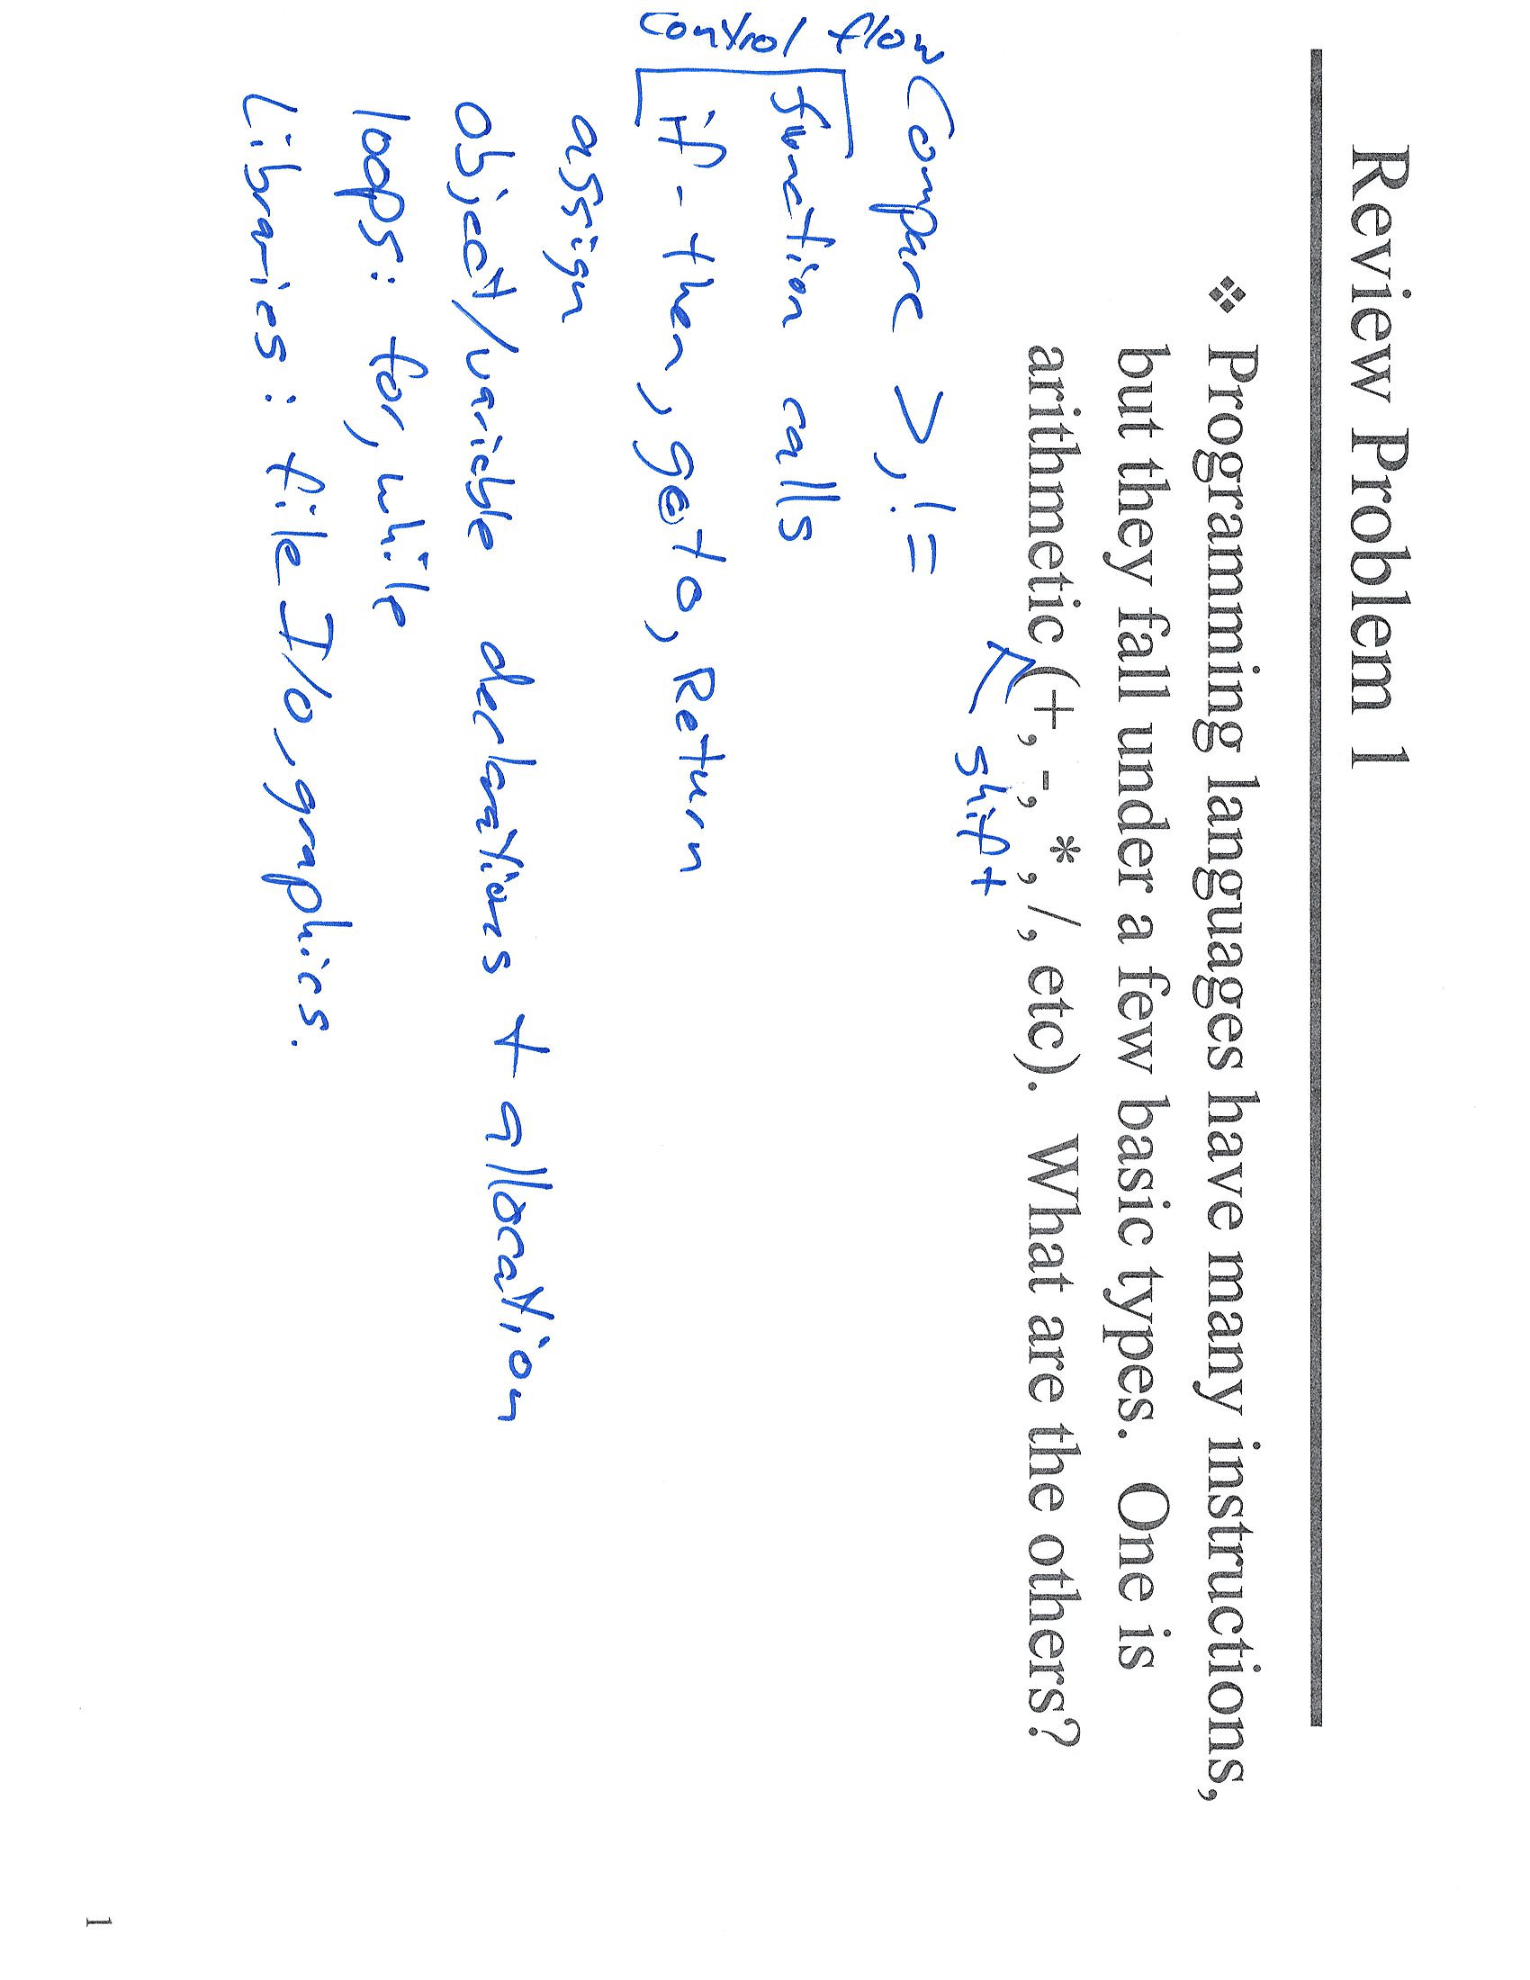 Review Problem 1
❖ Programming languages have many instructions,
but they fall under a few basic types. One is
arithmetic (+, -, *, /, etc). What are the others?
shift
Compare >, !=
control flow
function calls
if - then, goto, Return
assign
object/variable declarations + allocation
loops: for, while
Libraries: file I/O, graphics.
1